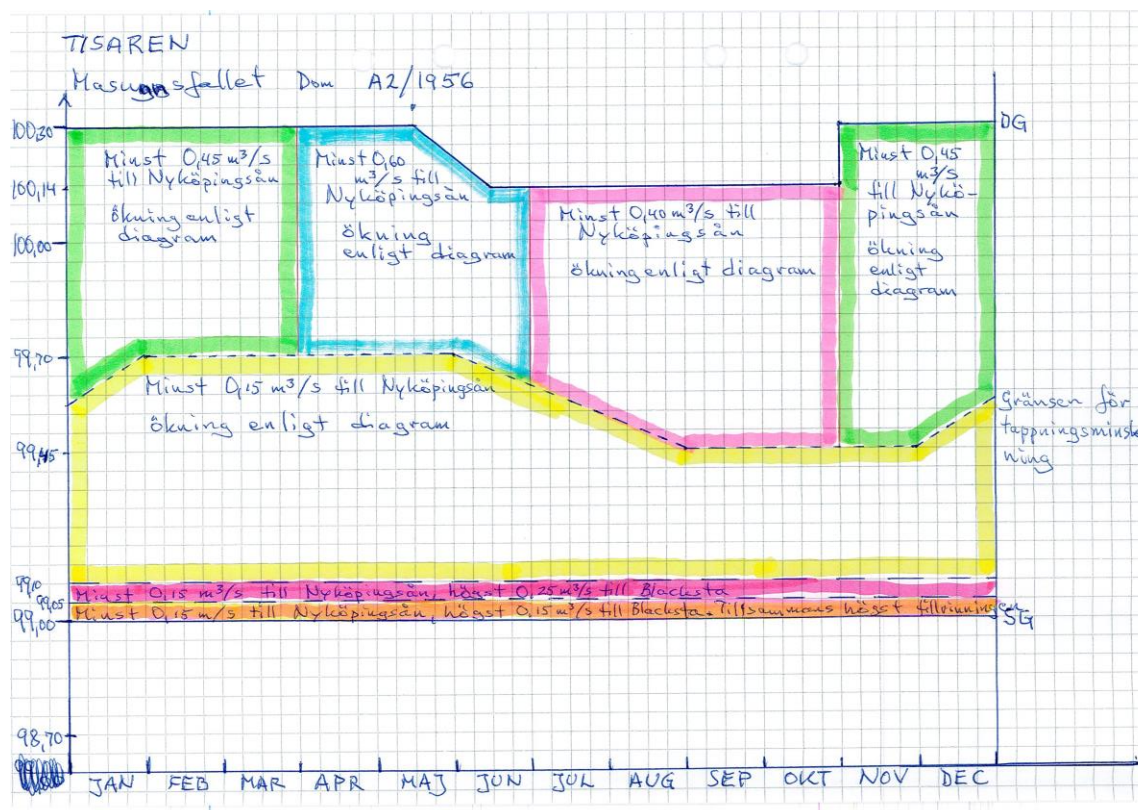 TISAREN
Masugnsfallet Dom A2/1956
100,30
DG
Minst 0,45 m³/s
till Nyköpingsån
ökning enligt
diagram
Minst 0,60
m³/s till
Nyköpingsån
ökning
enligt diagram
Minst 0,40 m³/s till
Nyköpingsån
ökning enligt diagram
Minst 0,45
m³/s
till Nykö-
pingsån
ökning
enligt
diagram
100,14
100,00
99,70
Minst 0,15 m³/s till Nyköpingsån
ökning enligt diagram
Gränsen för
tappningsminsk
ning
99,45
99,10
Minst 0,15 m³/s till Nyköpingsån, högst 0,25 m³/s till Blacksta
99,05
Minst 0,15 m/s till Nyköpingsån, högst 0,15 m³/s till Blacksta. Tillsammans högst tillrinningen
99,00
SG
98,70
JAN FEB MAR APR MAJ JUN JUL AUG SEP OKT NOV DEC